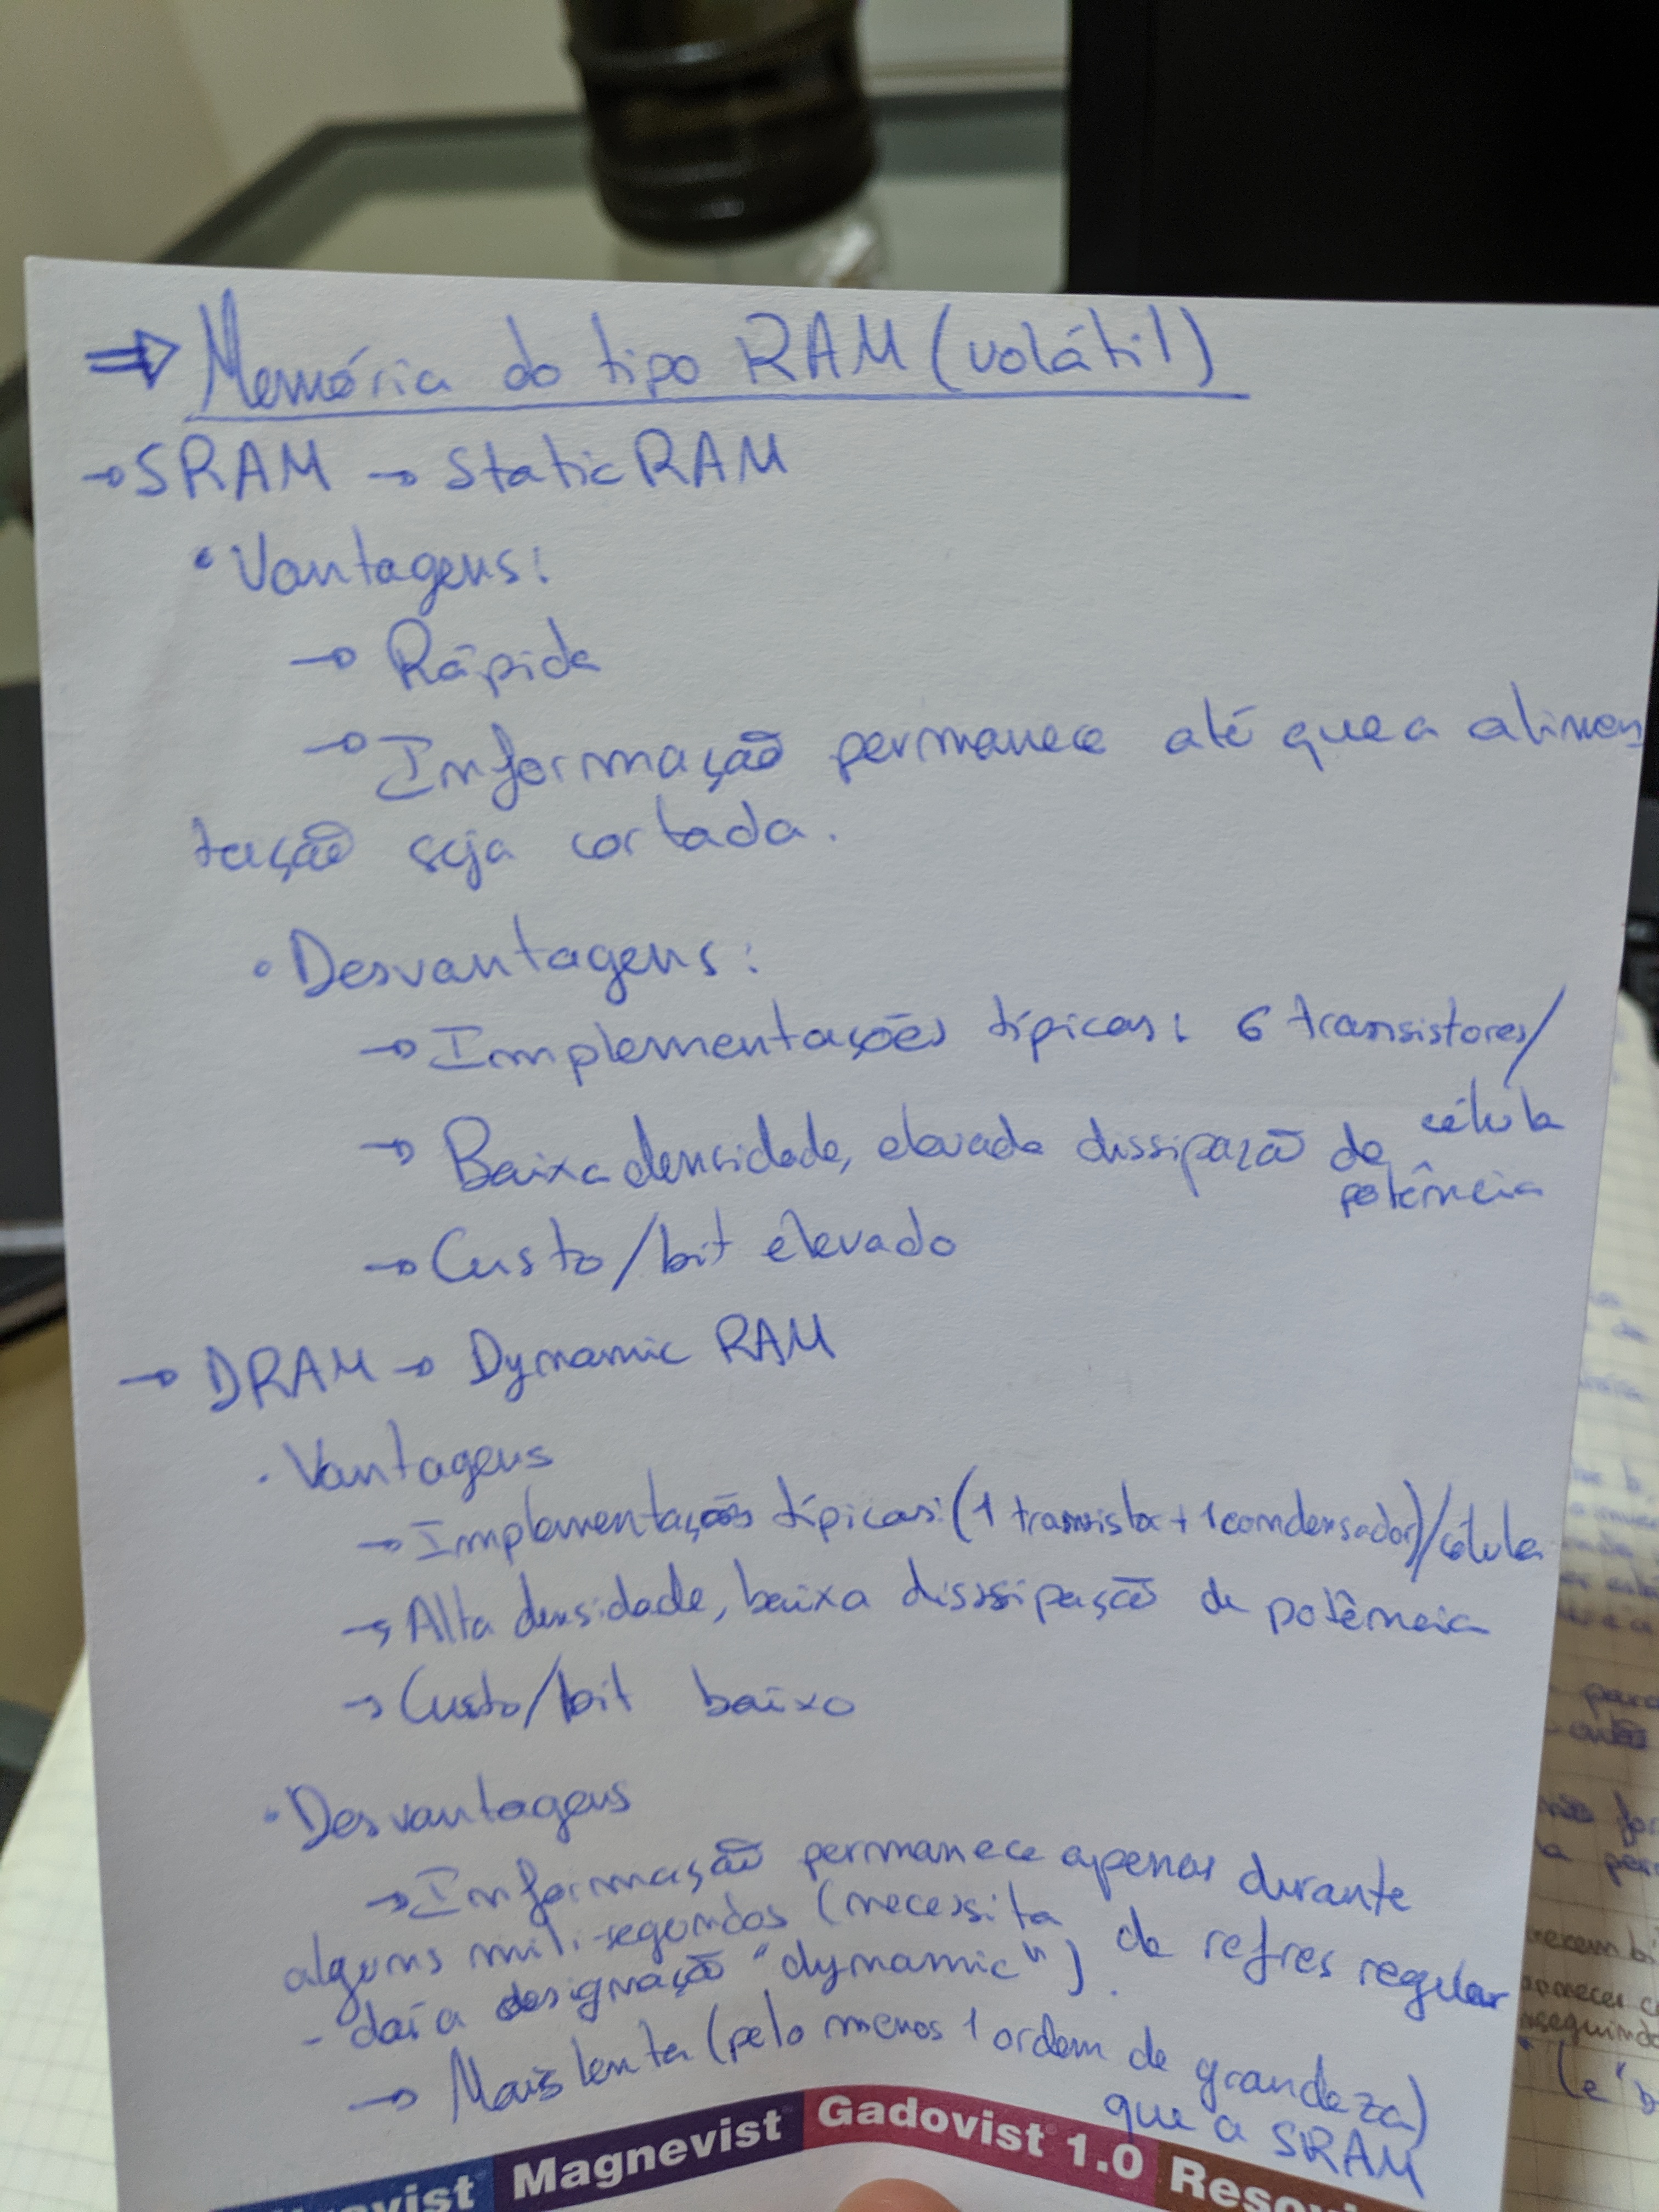 ⇒ Memória do tipo RAM (volátil)
→ SRAM → Static RAM
• Vantagens:
→ Rápida
→ Informação permanece até que a alimen
tação seja cortada.
• Desvantagens:
→ Implementações típicas: 6 transistores/
célula
→ Baixa densidade, elevada dissipação de
potência
→ Custo/bit elevado
→ DRAM → Dynamic RAM
• Vantagens
→ Implementações típicas: (1 transistor + 1 condensador)/célula
→ Alta densidade, baixa dissipação de potência
→ Custo/bit baixo
• Desvantagens
→ Informação permanece apenas durante
alguns mili-segundos (necessita de refres regular
- daí a designação "dynamic")
→ Mais lenta (pelo menos 1 ordem de grandeza)
que a SRAM
Magnevist Gadovist 1.0
para